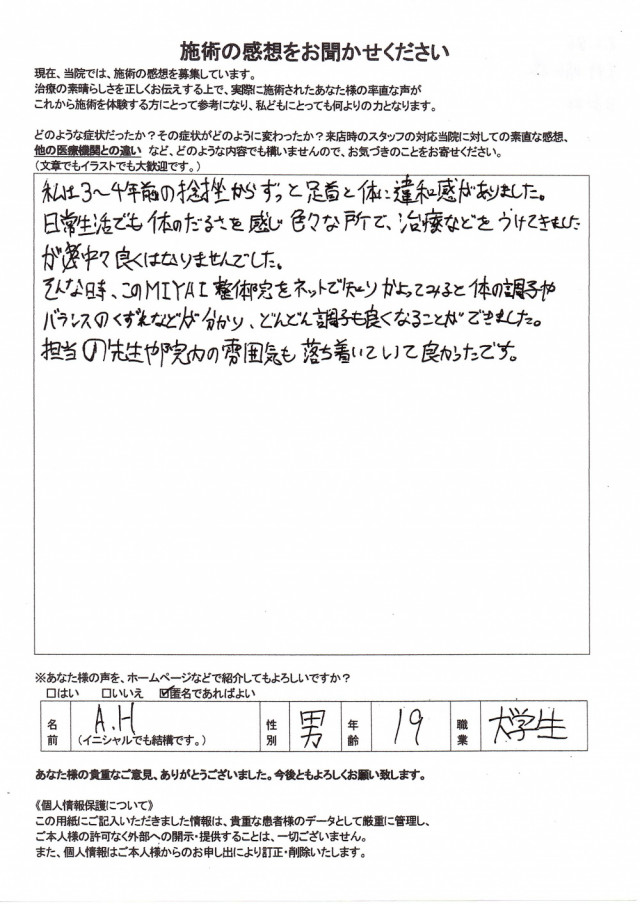 施術の感想をお聞かせください
現在、当院では、施術の感想を募集しています。
治療の素晴らしさを正しくお伝えする上で、実際に施術されたあなた様の率直な声が
これから施術を体験する方にとって参考になり、私どもにとっても何よりの力となります。
どのような症状だったか？その症状がどのように変わったか？来店時のスタッフの対応当院に対しての素直な感想、
他の医療機関との違い など、どのような内容でも構いませんので、お気づきのことをお寄せください。
（文章でもイラストでも大歓迎です。）
私は3〜4年前の捻挫からずっと足首と体に違和感がありました。
日常生活でも体のだるさを感じ色々な所で、治療などをうけてきました
が中々良くはなりませんでした。
そんな時、このMIYAI整体院をネットで知りかよってみると体の調子や
バランスのくずれなどが分かり、どんどん調子も良くなることができました。
担当の先生や院内の雰囲気も落ち着いていて良かったです。
※あなた様の声を、ホームページなどで紹介してもよろしいですか？
□はい □いいえ ☑匿名であればよい
名前 A.H （イニシャルでも結構です。） 性別 男 年齢 19 職業 大学生
あなた様の貴重なご意見、ありがとうございました。今後ともよろしくお願い致します。
《個人情報保護について》
この用紙にご記入いただきました情報は、貴重な患者様のデータとして厳重に管理し、
ご本人様の許可なく外部への開示・提供することは、一切ございません。
また、個人情報はご本人様からのお申し出により訂正・削除いたします。